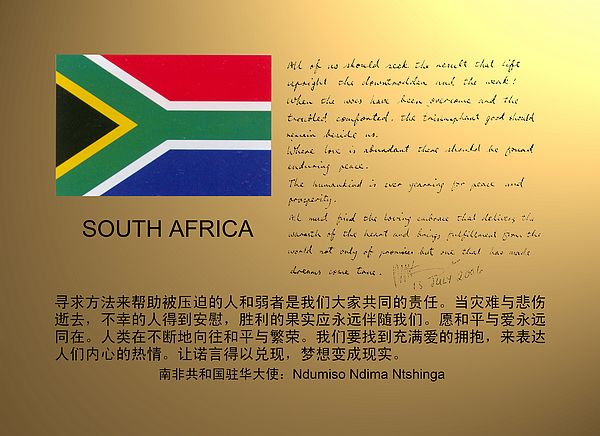 SOUTH AFRICA
All of us should seek the results that lift
upright the downtrodden and the weak!
When the woes have been overcome and the
troubled comforted, the triumphant good should
remain beside us.
Where love is abundant there should be found
enduring peace.
The humankind is ever yearning for peace and
prosperity.
All must find the loving embrace that delivers the
warmth of the heart and brings fulfillment from the
world not only of promises but one that has made
dreams come true.
15 JULY 2006
寻求方法来帮助被压迫的人和弱者是我们大家共同的责任。当灾难与悲伤
逝去，不幸的人得到安慰，胜利的果实应永远伴随我们。愿和平与爱永远
同在。人类在不断地向往和平与繁荣。我们要找到充满爱的拥抱，来表达
人们内心的热情。让诺言得以兑现，梦想变成现实。
南非共和国驻华大使：Ndumiso Ndima Ntshinga